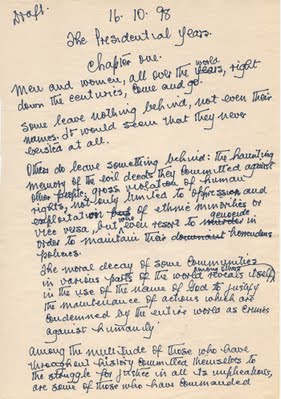 Draft.
16.10.98
The Presidential Years.
Chapter one.
Men and women, all over the world, right
down the centuries, come and go.
Some leave nothing behind, not even their
names. It would seem that they never
existed at all.
Others do leave something behind: the haunting
memory of the evil deeds they committed against
other people; gross violation of human
rights, not only limited to oppression and
exploitation of ethnic minorities or
vice versa, but who even resort to genocide in
order to maintain their horrendous
policies.
The moral decay of some communities
in various parts of the world reveals itself among others
in the use of the name of God to justify
the maintenance of actions which are
condemned by the entire world as crimes
against humanity.
Among the multitude of those who have
throughout history committed themselves to
the struggle for justice in all its implications,
are some of those who have commanded